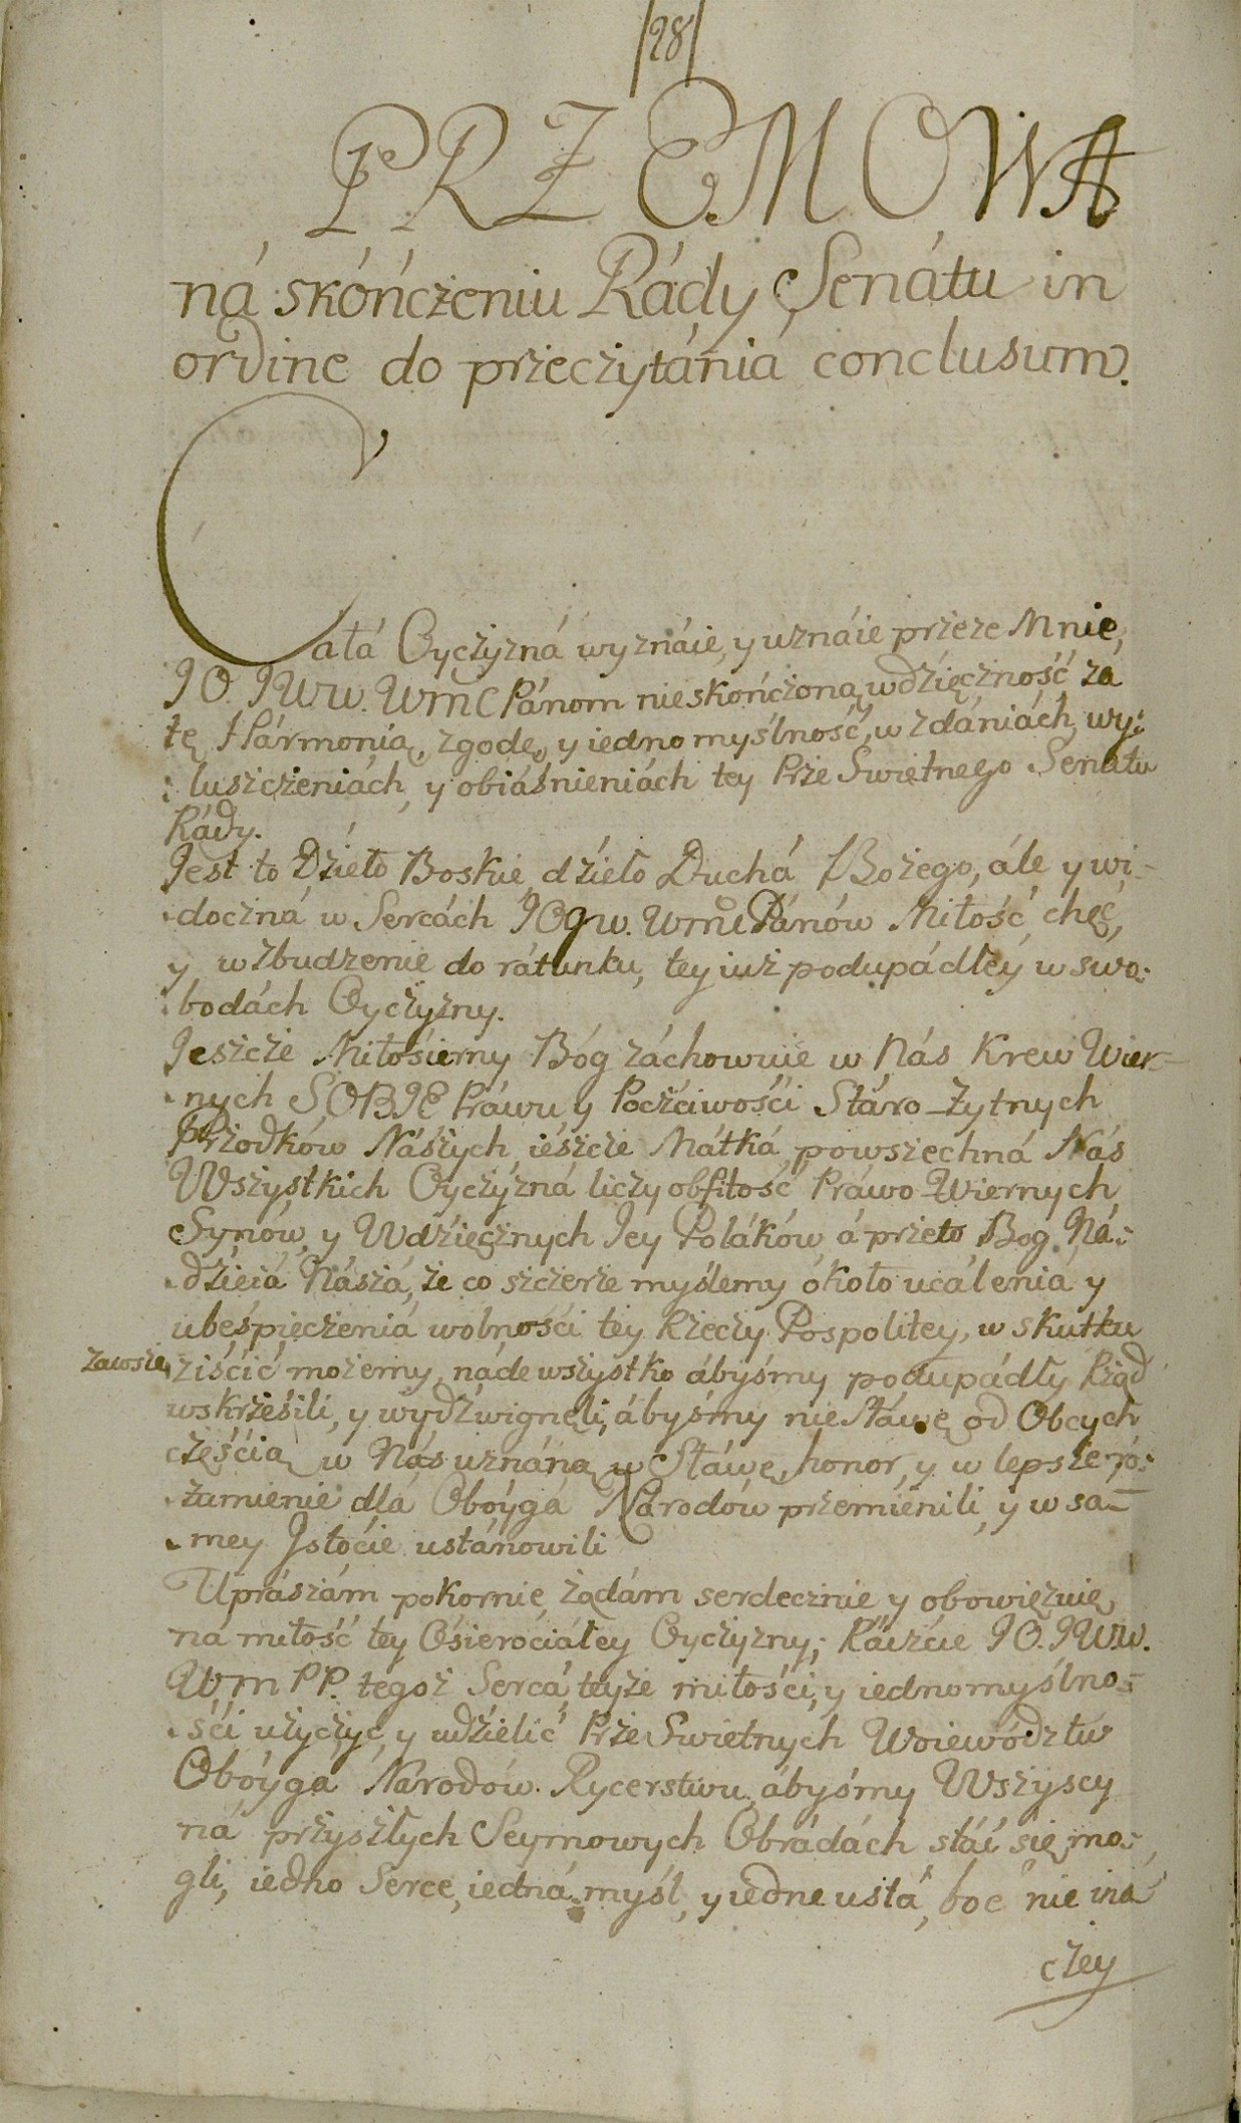 /28/
PRZEMOWA
ná skończeniu Rády Senátu in
ordine do przeczytánia conclusum.
Cała Oyczyzná wyznáie, y uznáie przeze Mnie,
JO. JWW. WmC Pánom nieskończoną wdzięczność za
tę Hármonią, zgodę, y iednomyślność, w zdániách, wy:
:luszczeniách, y obiáśnieniách tey Prze Swietnego Senatu
Rády.
Jest to Dzieło Boskie, dzieło Duchá Bożego, ále y wi-
doczná w Sercách JO JWW. WmC Pánów Miłość, chęć,
y wzbudzenie do rátunku, tey iuż podupádłey w swo:
:bodách Oyczyzny.
Jeszcze Miłosierny Bóg záchowuie w Nás Krew Wier-
nych SOBIE Práwu y Poczciwości Stáro-żytnych
Przodków Nászych, ieszcze Mátká powszechná Nás
Wszystkich Oyczyzná liczy obfitość Práwo-Wiernych
Synów, y Wdzięcznych Jey Poláków, á przeto Bog Ná:
dzieiá Nászá, że co szczerze myślemy około ucálenia y
ubeśpieczeniá wolności tey Rzeczy Pospolitey, w skutku
zawsze ziścić możemy, náde wszystko ábyśmy podupádły Rząd
wskrzesili, y wydźwignęli, ábyśmy niesłáwę od Obcych
częścią w Nás uznáną w Słáwę, honor, y w lepsze ro:
zumienie dlá Oboygá Národow przemienili, y w sa-
mey Jstocie ustánowili
Upraszám pokornie, żądám serdecznie y obowięzuię
ná miłość tey Osierociáłey Oyczyzny; Ráczcie JO. JWW.
Wm PP. tegoż Sercá, teyże miłości, y iednomyślno:
ści użyczyć, y udzielić Prze Swietnych Woiewodztw
Oboyga Národow Rycerstwu, ábyśmy Wszyscy
ná przyszłych Seymowych Obrádách stáć się mo:
gli, iedno Serce, iedná myśl, y iedne ustá, boć nie iná
czey